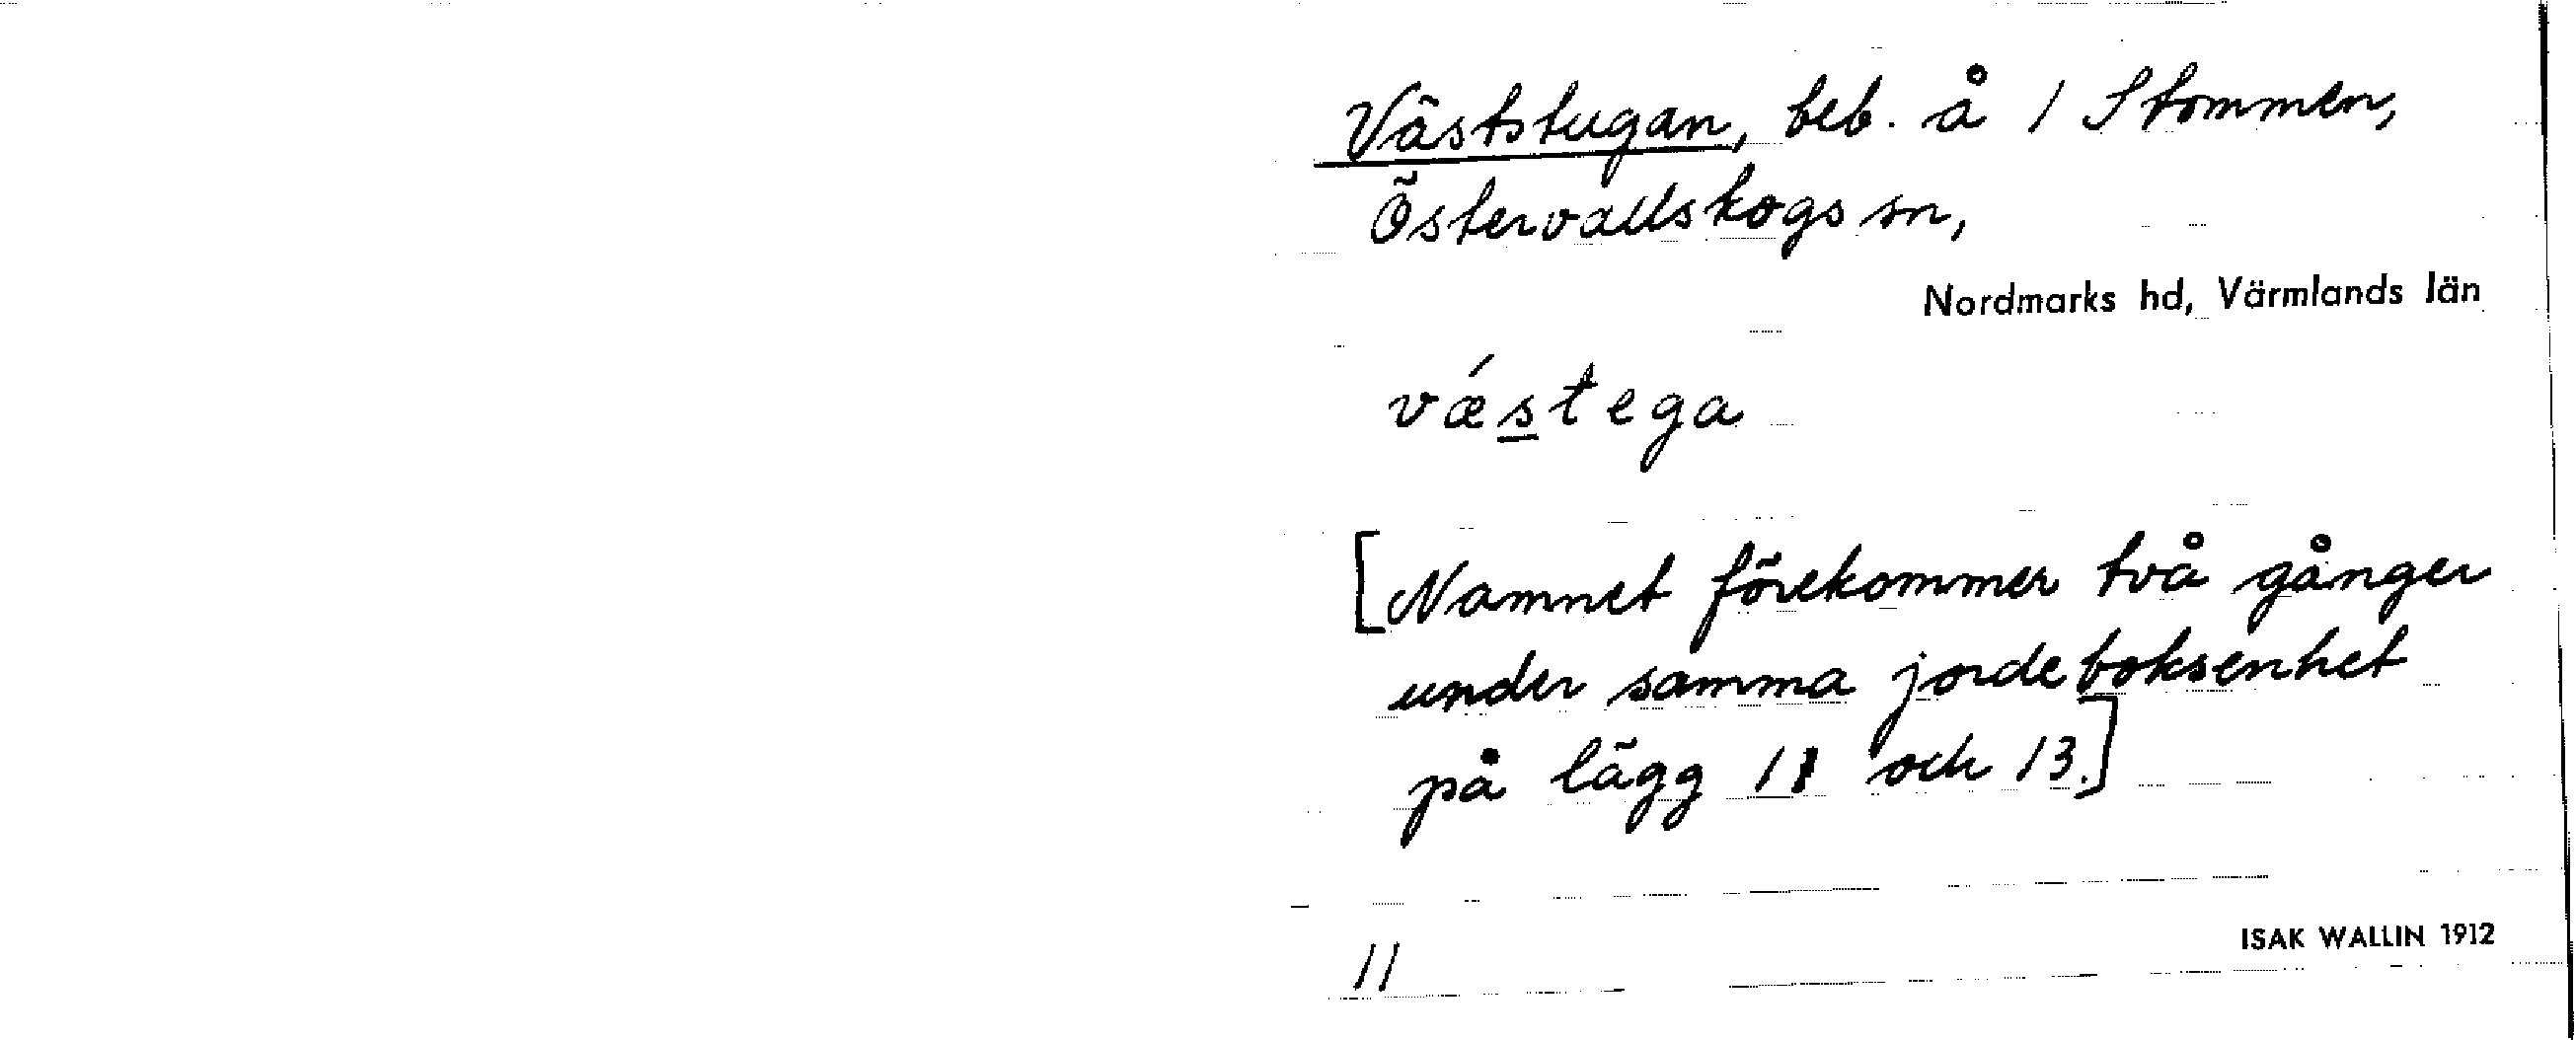 Väststugan, beb. å 1 Stommen,
Östervallskogs sn,
Nordmarks hd, Värmlands län
vǽstega
[Namnet förekommer två gånger
under samma jordeboksenhet
på lägg 11 och 13.]
11
ISAK WALLIN 1912